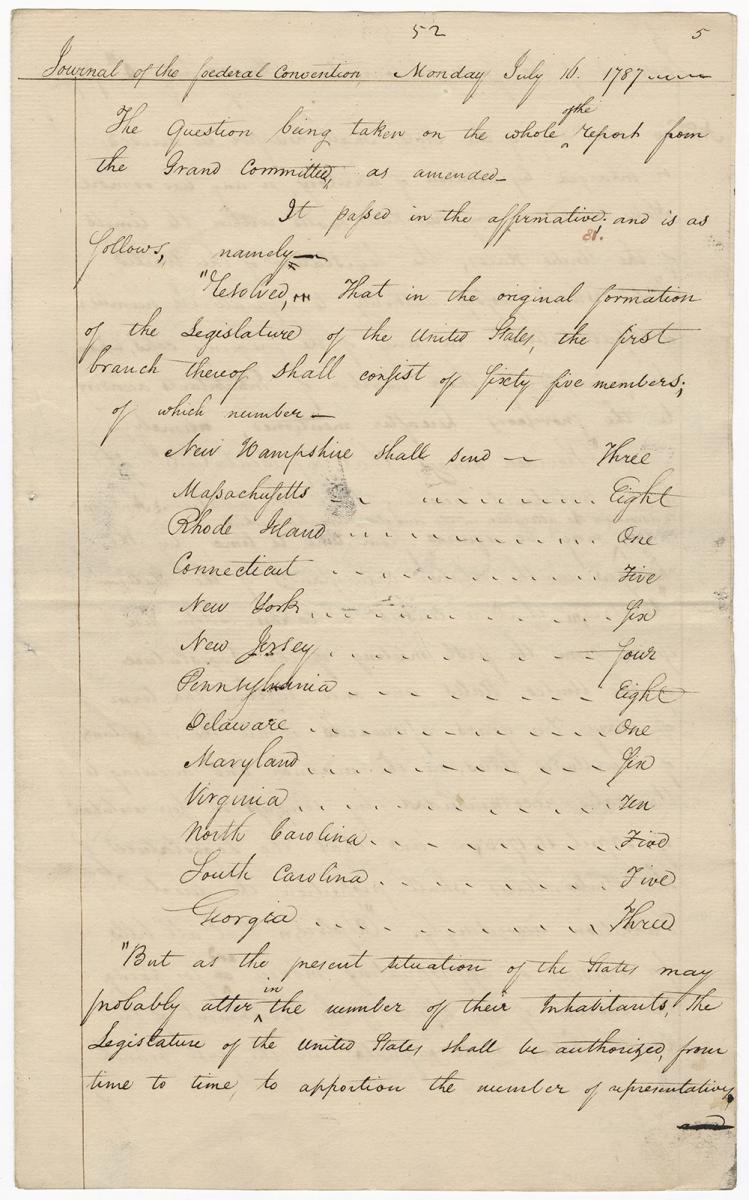 52
5
Journal of the foederal Convention, Monday July 16. 1787
The Question being taken on the whole of the report from
the Grand Committee, as amended
It passed in the affirmative. and is as
81.
follows, namely
"Resolved, That in the original formation
of the Legislature of the United States, the first
branch thereof shall consist of sixty five members;
of which number
New Hampshire shall send Three
Massachusetts Eight
Rhode Island One
Connecticut Five
New York Six
New Jersey four
Pennsylvania Eight
Delaware One
Maryland Six
Virginia Ten
North Carolina Five
South Carolina Five
Georgia Three
"But as the present situation of the States may
probably alter in the number of their Inhabitants, the
Legislature of the United States shall be authorized, from
time to time, to apportion the number of representatives,